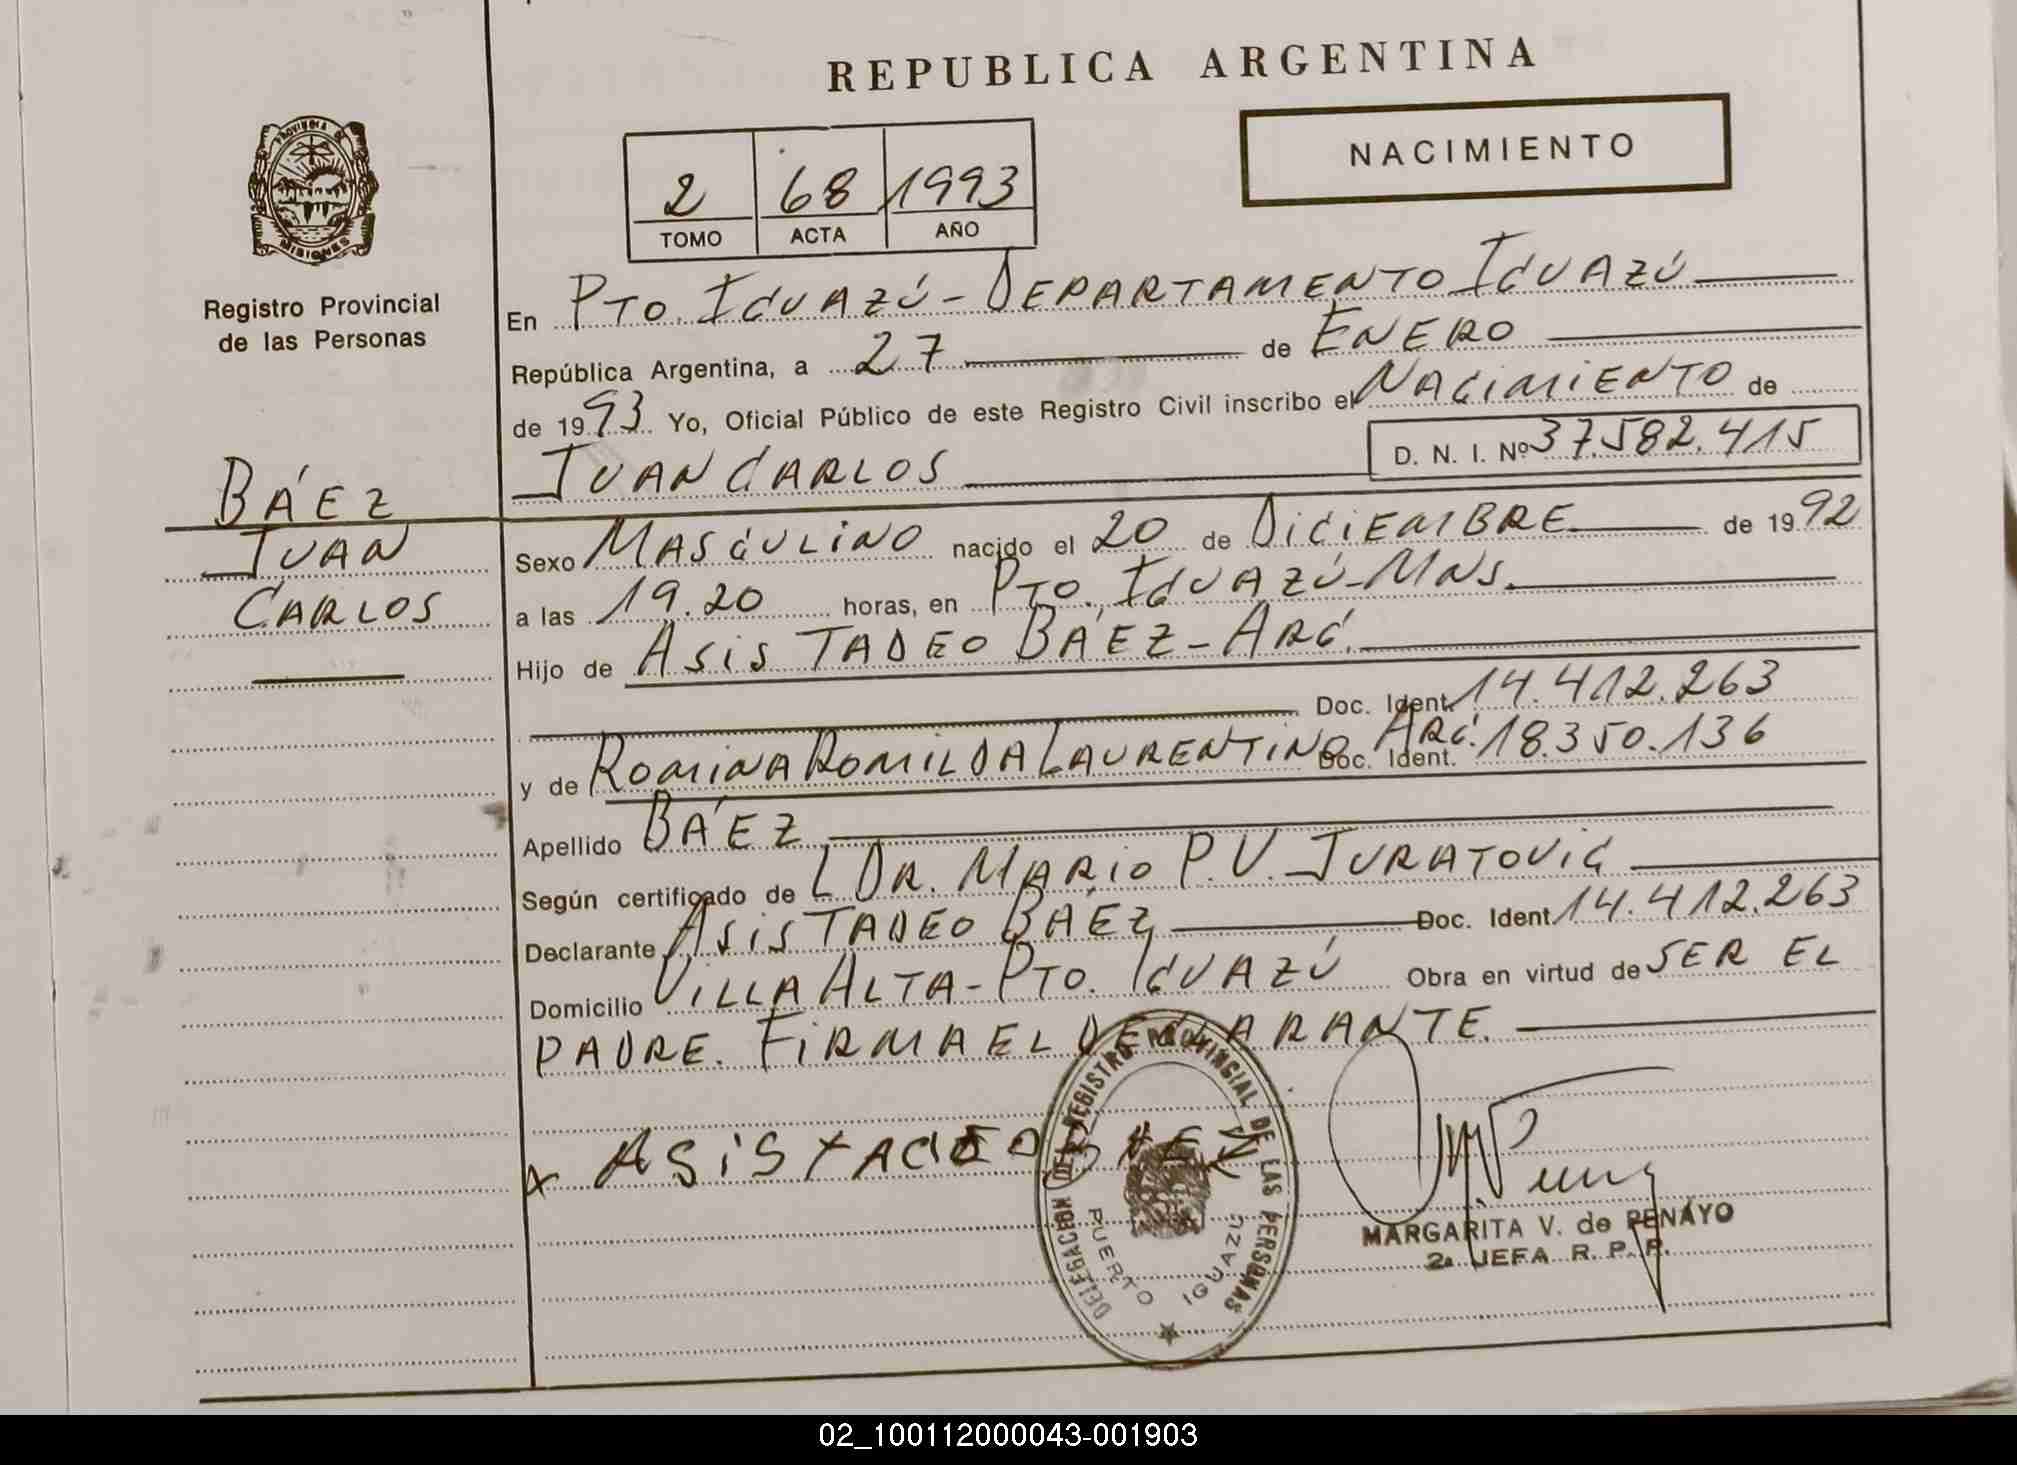 REPUBLICA ARGENTINA
NACIMIENTO
2 68 1993
TOMO ACTA AÑO
PROVINCIA DE
MISIONES
Registro Provincial
de las Personas
En PTO. IGUAZÚ - DEPARTAMENTO IGUAZÚ
República Argentina, a 27 de ENERO
de 1993 Yo, Oficial Público de este Registro Civil inscribo el NACIMIENTO de
D. N. I. Nº 37.582.415
JUAN CARLOS
BÁEZ
JUAN
CARLOS
Sexo MASCULINO nacido el 20 de DICIEMBRE de 1992
a las 19.20 horas, en PTO. IGUAZÚ - MNS.
Hijo de ASIS TADEO BÁEZ - ARG.
Doc. Ident. 14.412.263
y de ROMINA ROMILDA LAURENTINO ARG. Doc. Ident. 18.350.136
Apellido BÁEZ
Según certificado de L DR. MARIO P.V. JURATOVIC
Declarante ASIS TADEO BÁEZ Doc. Ident. 14.412.263
Domicilio VILLA ALTA - PTO. IGUAZÚ Obra en virtud de SER EL
PADRE. FIRMA EL DECLARANTE.
ASIS TADEO BAEZ
DELEGACION DEL REGISTRO PROVINCIAL DE LAS PERSONAS
PUERTO IGUAZU
MARGARITA V. de PENAYO
2a JEFA R. P. P.
02_100112000043-001903